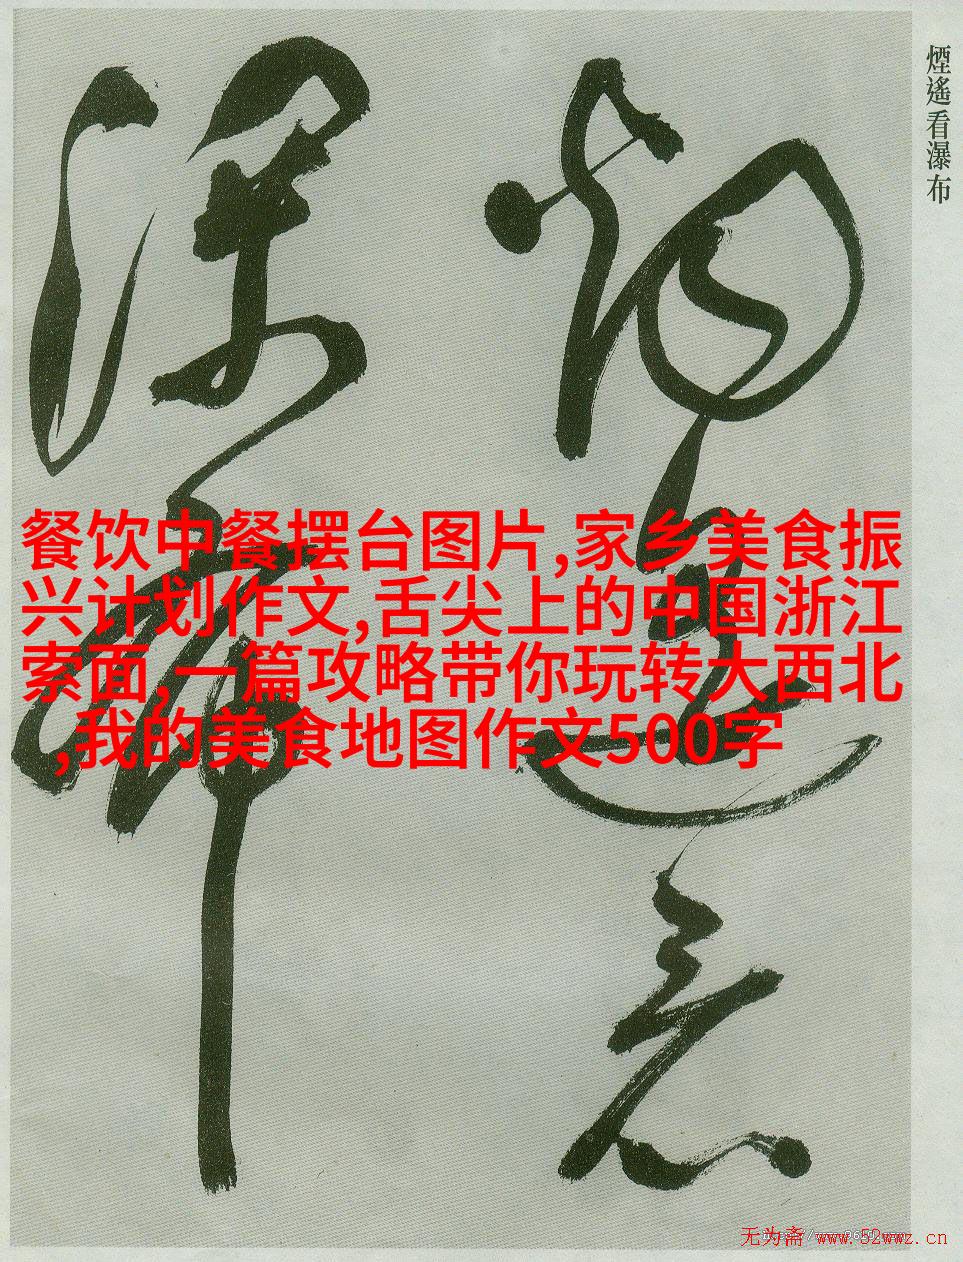 煙遙看瀑布
煙遙看
瀑布
餐饮中餐摆台图片,家乡美食振
兴计划作文,舌尖上的中国浙江
索面,一篇攻略带你玩转大西北
,我的美食地图作文500字
无为斋 www.52wwz.cn